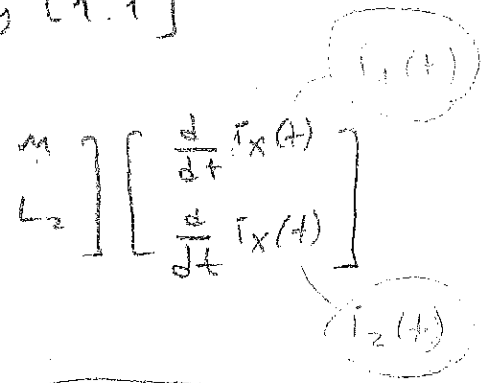 [1.1]
i₁(t)
M ] [ d/dt iₓ(t) ]
L₂ ] [ d/dt iₓ(t) ]
i₂(t)